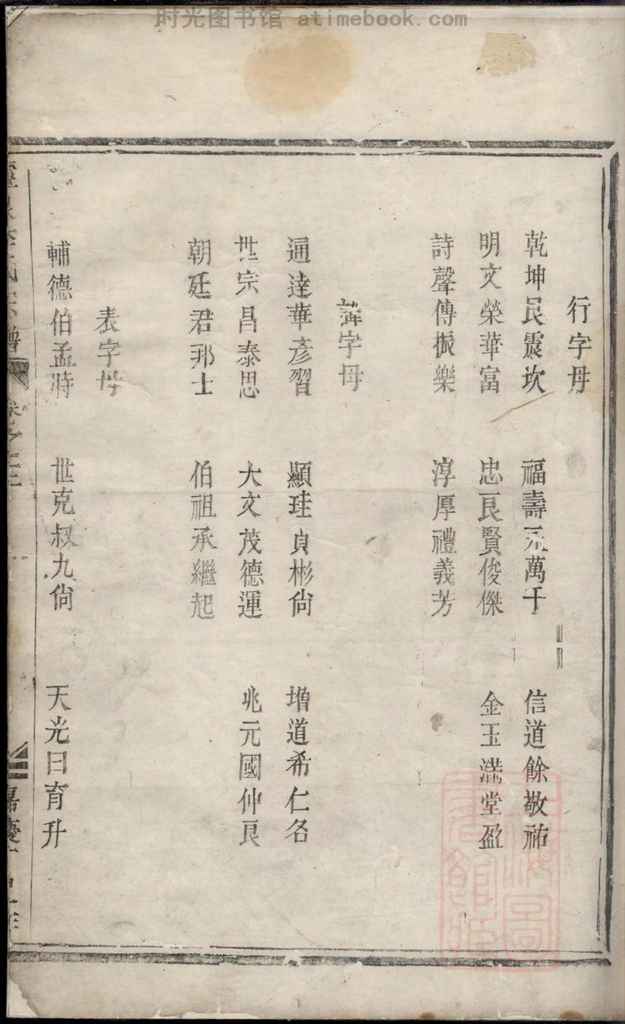 时光图书馆 atimebook.com
行字母
乾坤艮震坎 福壽承萬千 信道餘敬祐
明文榮華富 忠良賢俊傑 金玉滿堂盈
詩聲傳振樂 淳厚禮義芳
諱字母
通達華彥習 顯珪貞彬尙 增道希仁名
世宗昌泰思 大文茂德運 兆元國仲良
朝廷君邦士 伯祖承繼起
表字母
輔德伯孟時 世克叔九尙 天光日育升
氏宗譜 卷之 嘉慶